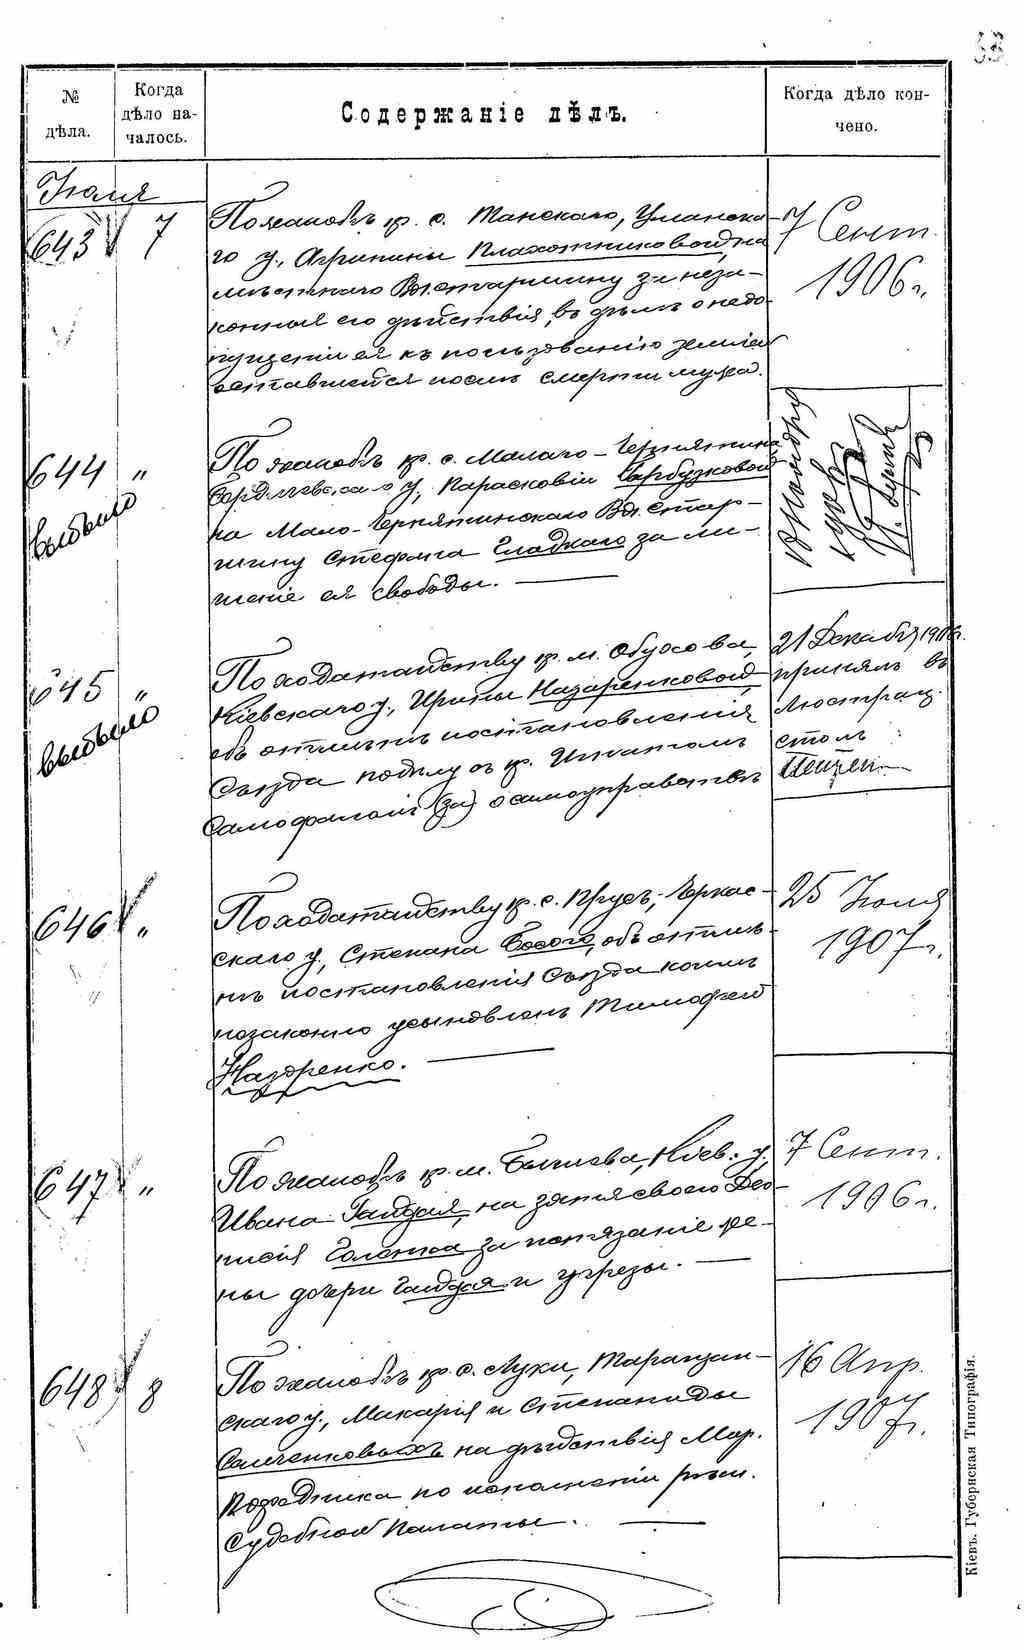 №
дѣла.
Когда
дѣло на-
чалось.
Содержаніе дѣлъ.
Когда дѣло кон-
чено.
Іюля
643 7
По жалобѣ кр. с. Танскаго, Уманска-
го у., Агрипины Плахотниковой, на
мѣстнаго Вл. старшину за неза-
конныя его дѣйствія, въ дѣлѣ о недо-
пущеніи ея къ пользованію землей
оставшейся послѣ смерти мужа.
7 Сент.
1906 г.
644 "
выбыло
По жалобѣ кр. с. Малаго-Чернятина
Бердичевскаго у., Парасковіи Гарбузковой
на Мало-Чернятинскаго Вл. Стар-
шину Стефана Гладкаго за ли-
шеніе ея свободы.
645 "
выбыло
По ходатайству кр. м. Обухова,
Кіевскаго у., Ирины Назаренковой,
объ отмѣнѣ постановленія
Съѣзда по дѣлу съ кр. Игнатомъ
(за) о самоуправствѣ
21 Декабря 1906 г.
принялъ въ
Люстрац.
столъ
646 "
По ходатайству кр. с. Прусъ, Черкас-
скаго у., Степана Босого, объ отмѣ-
нѣ постановленія Съѣзда коимъ
незаконно усыновленъ Тимофей
Назаренко.
25 Іюля
1907 г.
647 "
По жалобѣ кр. м. Бышева, Кіев. у.
Ивана Гайдая, на зятя своего Део-
нисія Голотка за истязаніе же-
ны дочери Гайдая и угрозы.
7 Сент.
1906 г.
648 8
По жалобѣ кр. с. Луки, Таращан-
скаго у., Макарія и Степаниды
Самченковыхъ на дѣйствія Мир.
Посредника по исполненіи рѣш.
Судебной Палаты.
16 Апр.
1907 г.
Кіевъ. Губернская Типографія.